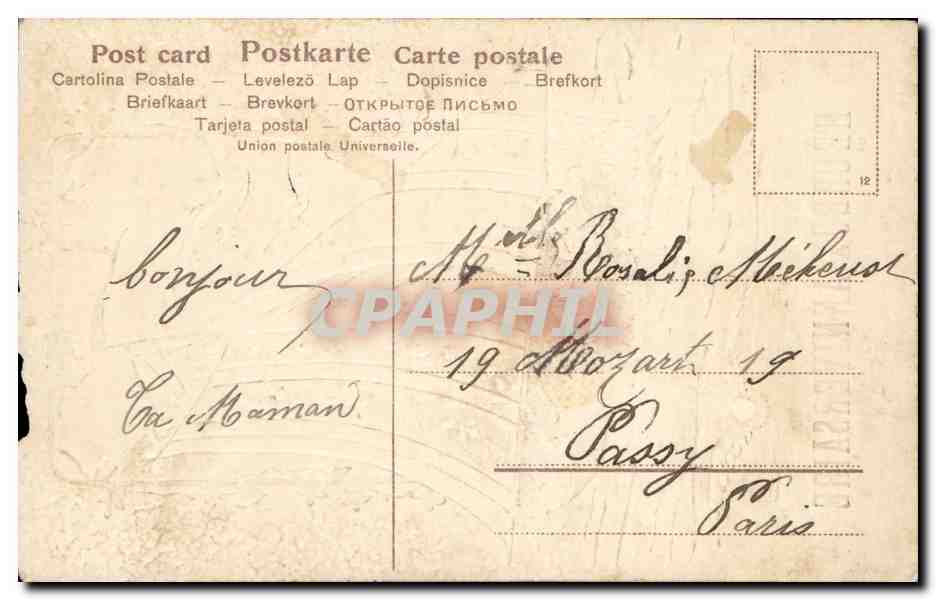 Post card Postkarte Carte postale
Cartolina Postale — Levelező Lap — Dopisnice — Brefkort
Briefkaart — Brevkort — Открытое Письмо
Tarjeta postal — Cartão postal
Union postale Universelle.
12
bonjour
Ta Maman
Melle Rosalie Méheust
19 Mozart 19
Passy
Paris
CPAPHIL